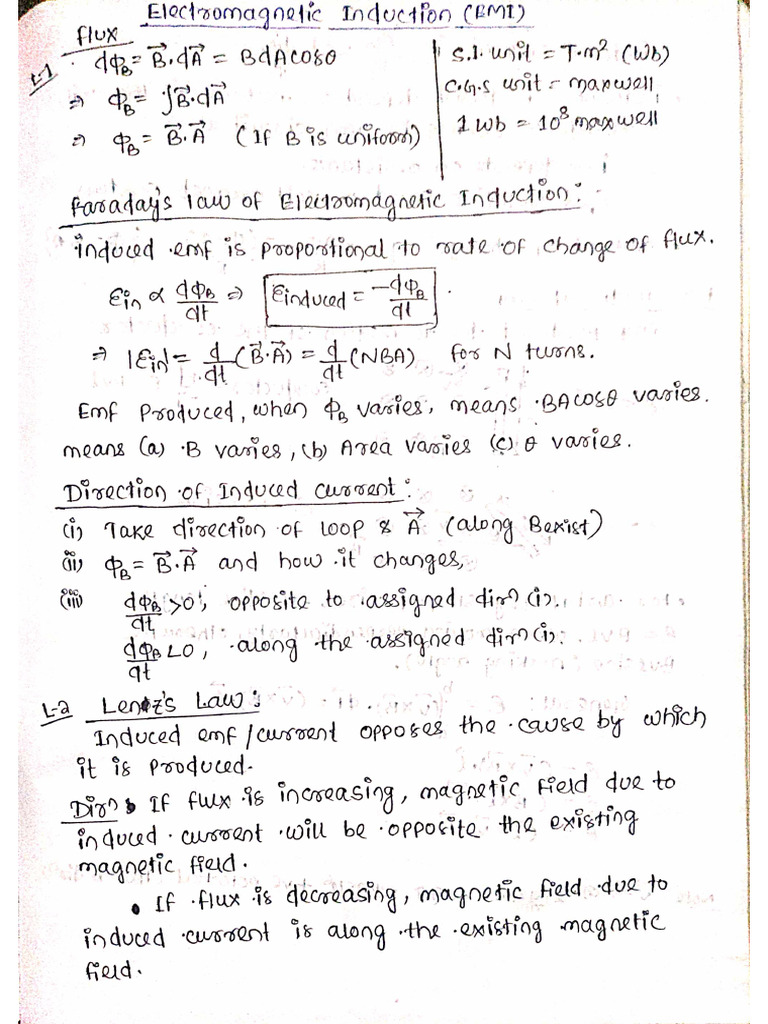 Electromagnetic Induction (EMI)
flux
L-1
dΦ_B = B⃗.dA⃗ = BdAcosθ
⇒ Φ_B = ∫B⃗.dA⃗
⇒ Φ_B = B⃗.A⃗ (If B is uniform)
S.I. unit = T.m² (Wb)
C.G.S unit = maxwell
1 Wb = 10⁸ maxwell
Faraday's law of Electromagnetic Induction:
induced emf is proportional to rate of change of flux.
Ɛin ∝ dΦ_B/dt ⇒ Ɛinduced = -dΦ_B/dt .
⇒ |Ɛin| = d/dt (B⃗.A⃗) = d/dt (NBA) for N turns.
Emf Produced, when Φ_B varies, means BAcosθ varies.
means (a) B varies, (b) Area varies (c) θ varies.
Direction of Induced current:
(i) Take direction of loop & A⃗ (along Bexist)
(ii) Φ_B = B⃗.A⃗ and how it changes,
(iii) dΦ_B/dt >0, opposite to assigned dirn (i).
dΦ_B/dt <0, along the assigned dirn (i).
L-2 Lenz's Law:
Induced emf/current opposes the cause by which
it is produced.
Dirn • If flux is increasing, magnetic field due to
induced current will be opposite the existing
magnetic field.
• If flux is decreasing, magnetic field due to
induced current is along the existing magnetic
field.